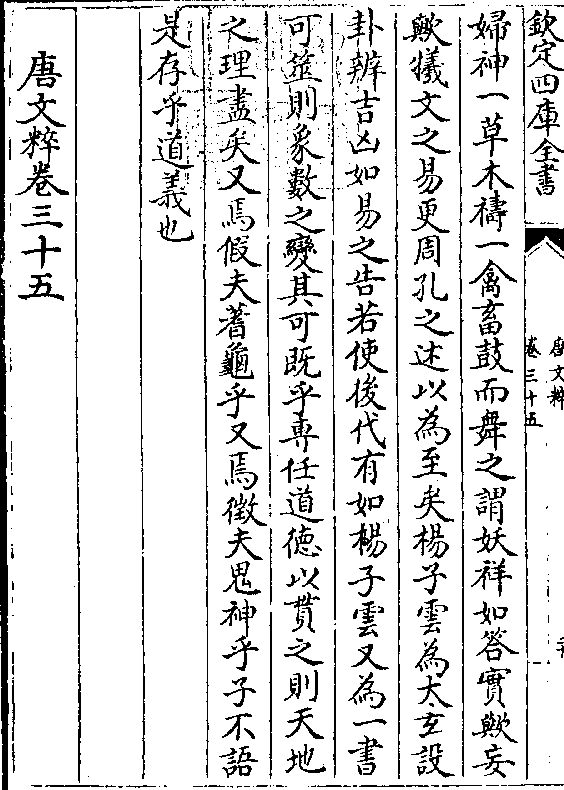 欽定四庫全書
唐文粹
卷三十五
婦神一草木禱一禽畜鼓而舞之謂妖祥如答實歟妄
歟犧文之易更周孔之述以為至矣楊子雲為太玄設
卦辨吉凶如易之告若使後代有如楊子雲又為一書
可筮則象數之變其可既乎專任道德以貫之則天地
之理盡矣又焉假夫蓍龜乎又焉徵夫鬼神乎子不語
是存乎道義也
唐文粹卷三十五